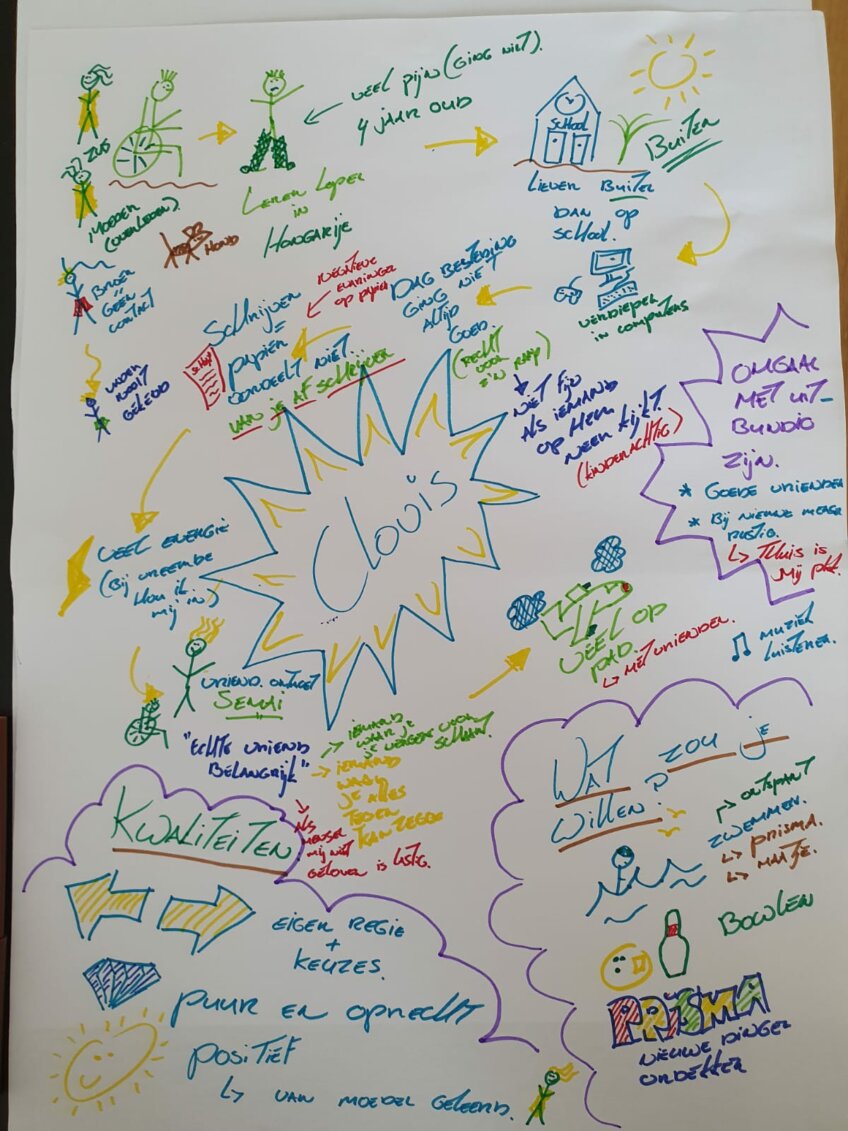 ZUS
MOEDER
(OVERLEDEN).
HOND
BROER
GEEN
CONTACT
VADER
NOOIT
GEKEND
LEREN LOPEN
IN
HONGARIJE
VEEL PIJN (GING NIET).
4 JAAR OUD
SCHOOL
BUITEN
LIEVER BUITEN
DAN OP
SCHOOL.
VERDIEPEN
IN COMPUTERS
DAG BESTEDING
GING NIET
ALTIJD
GOED
(RECHT
VOOR
Z'N RAAP)
NIET FIJN
ALS IEMAND
OP HEM
NEER KIJKT.
(KINDERACHTIG)
NEGATIEVE
ERVARINGEN
OP PAPIER
SCHRIJVEN
=
PAPIER
OORDEELT NIET.
VAN JE AF SCHRIJVEN
OMGAAN
MET UIT-
BUNDIG
ZIJN.
* GOEDE VRIENDEN
* BIJ NIEUWE MENSEN
RUSTIG.
↳ THUIS IS
MIJ PLEK.
Clovis
VEEL ENERGIE
(BIJ VREEMDE
HOU IK
MIJ IN)
VRIEND ONTMOET
"ECHTE VRIEND
BELANGRIJK"
IEMAND
WAAR JE
JE NERGENS VOOR
SCHAAMT.
IEMAND
WAAR
JE ALLES
TEGEN
KAN ZEGGEN
ALS
MENSEN
MIJ NIET
GELOVEN IS LASTIG.
VEEL OP
PAD.
↳ MET VRIENDEN.
MUZIEK
LUISTEREN.
KWALITEITEN
EIGEN REGIE
+
KEUZES.
PUUR EN OPRECHT
POSITIEF
↳ VAN MOEDER GELEERD.
WAT ZOU JE
WILLEN?
ONTSPANT
ZWEMMEN.
↳ PRISMA.
↳ MAATJE.
BOWLEN
PRISMA
NIEUWE DINGEN
ONTDEKKEN